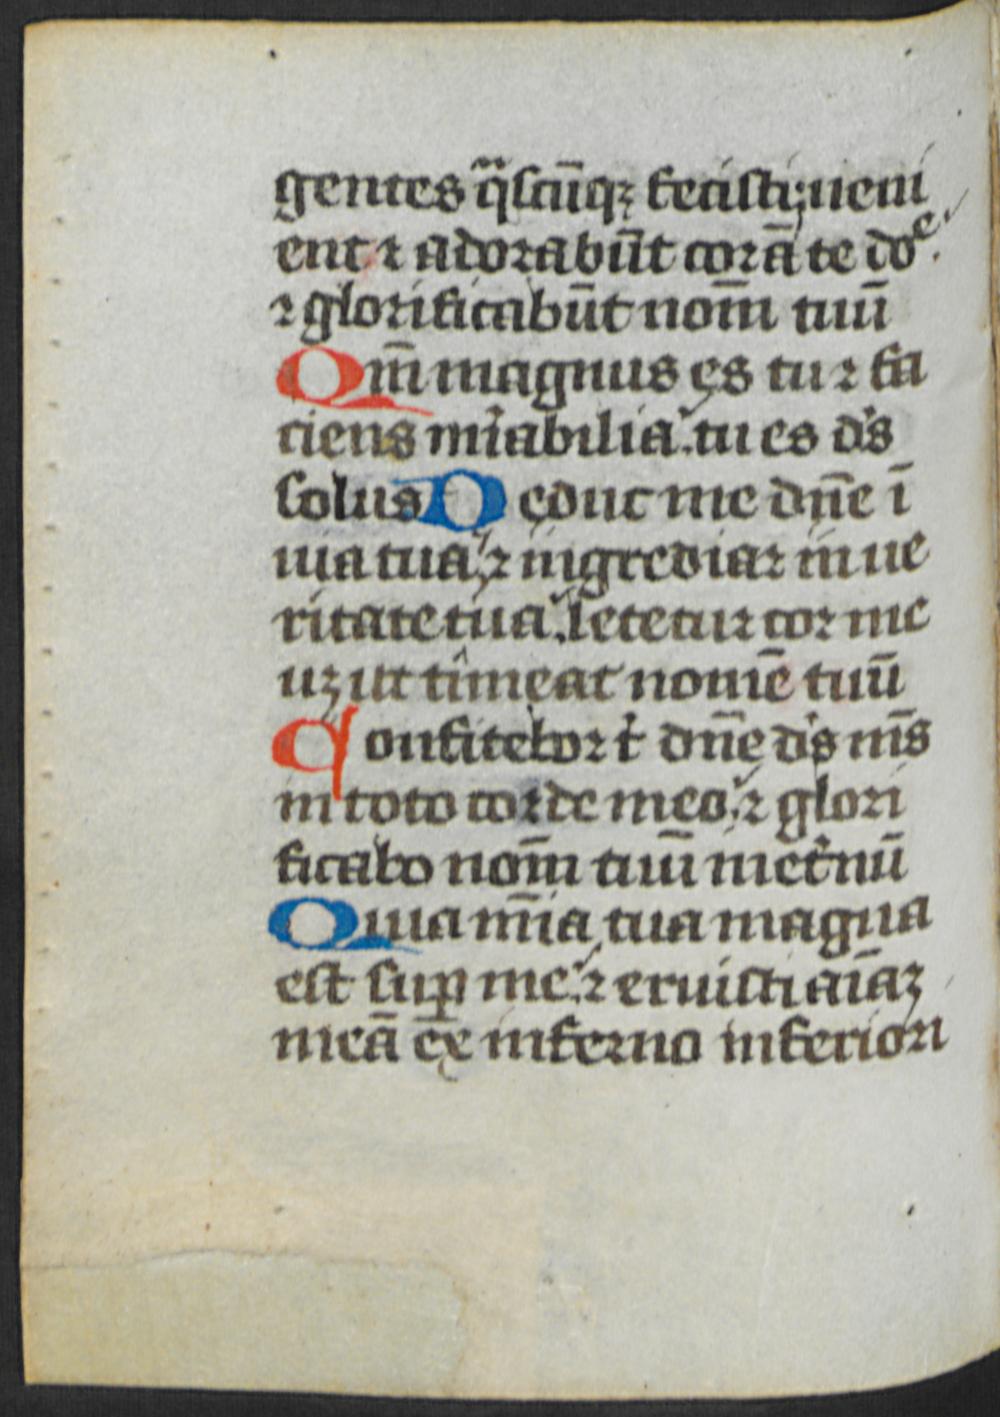 gentes q̄scūqꝫ fecisti, ueni
ent ⁊ adorabūt corā te doᵉ.
⁊ glorificabūt nom̄ tuū
Qm̄ magnus es tu ⁊ fa
ciens mīabilia. tu es ds̄
solus Deduc me dn̄e ī
uia tua, ⁊ ingrediar in ue
ritate tua. letetur cor me
uꝫ ut timeat nomē tuū
Confitebor t̄ dn̄e ds̄ ms̄
in toto corde meo, ⁊ glori
ficabo nom̄ tuū in et̄nū
Quia mīa tua magna
est suꝑ me. ⁊ eruisti aīaꝫ
meā ex inferno inferiori